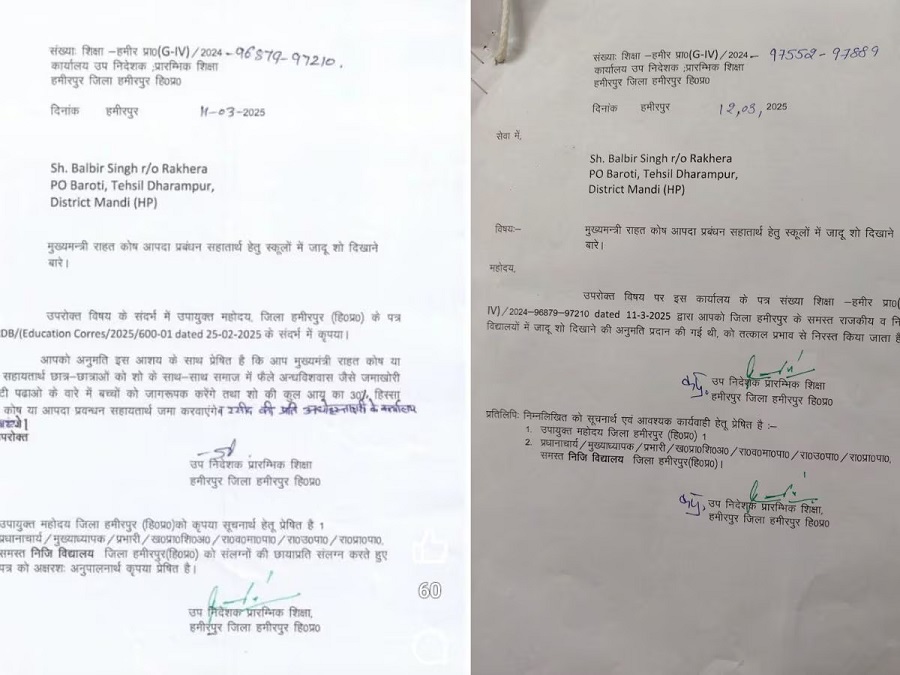 संख्याः शिक्षा –हमीर प्रा0(G-IV) / 2024 - 96879-97210.
कार्यालय उप निदेशक ;प्रारम्भिक शिक्षा
हमीरपुर जिला हमीरपुर हि0प्र0
दिनांक हमीरपुर 11-03-2025
Sh. Balbir Singh r/o Rakhera
PO Baroti, Tehsil Dharampur,
District Mandi (HP)
मुख्यमन्त्री राहत कोष आपदा प्रबंधन सहातार्थ हेतु स्कूलों में जादू शो दिखाने
बारे।
उपरोक्त विषय के संदर्भ में उपायुक्त महोदय, जिला हमीरपुर (हि0प्र0) के पत्र
DB/(Education Corres/2025/600-01 dated 25-02-2025 के संदर्भ में कृपया।
आपको अनुमति इस आशय के साथ प्रेषित है कि आप मुख्यमंत्री राहत कोष या
सहायतार्थ छात्र-छात्राओं को शो के साथ-साथ समाज में फैले अन्धविशवास जैसे जमाखोरी
टी पढाओ के वारे में बच्चों को जागरूक करेंगे तथा शो की कुल आयु का 30% हिस्सा
कोष या आपदा प्रवन्धन सहायतार्थ जमा करवाएंगे रसीद की प्रति अधोहस्ताक्षरी के कार्यालय
परोक्त
उप निदेशक प्रारम्भिक शिक्षा
हमीरपुर जिला हमीरपुर हि0प्र0
उपायुक्त महोदय जिला हमीरपुर (हि0प्र0)को कृपया सूचनार्थ हेतु प्रेषित है 1
प्रधानाचार्य / मुख्याध्यापक / प्रभारी / ख0प्रा0शि0अ0 / रा0व0मा0पा0 / रा0उ0पा0 / रा0प्रा0पा0,
समस्त निजि विद्यालय जिला हमीरपुर(हि0प्र0) को संलग्नों की छायाप्रति संलग्न करते हुए
पत्र को अक्षरशः अनुपालनार्थ कृपया प्रेषित है।
उप निदेशक प्रारम्भिक शिक्षा,
हमीरपुर जिला हमीरपुर हि0प्र0
60
संख्याः शिक्षा –हमीर प्रा0(G-IV) / 2024 - 97558-97889
कार्यालय उप निदेशक ;प्रारम्भिक शिक्षा
हमीरपुर जिला हमीरपुर हि0प्र0
दिनांक हमीरपुर 12,03, 2025
सेवा में,
Sh. Balbir Singh r/o Rakhera
PO Baroti, Tehsil Dharampur,
District Mandi (HP)
विषयः– मुख्यमन्त्री राहत कोष आपदा प्रबंधन सहातार्थ हेतु स्कूलों में जादू शो दिखाने
बारे।
महोदय,
उपरोक्त विषय पर इस कार्यालय के पत्र संख्या शिक्षा –हमीर प्रा0(
IV) / 2024-96879-97210 dated 11-3-2025 द्वारा आपको जिला हमीरपुर के समस्त राजकीय व नि
विद्यालयों में जादू शो दिखाने की अनुमति प्रदान की गई थी, को तत्काल प्रभाव से निरस्त किया जाता है
कृ, उप निदेशक प्रारम्भिक शिक्षा
हमीरपुर जिला हमीरपुर हि0प्र0
प्रतिलिपिः निम्नलिखित को सूचनार्थ एवं आवश्यक कार्यवाही हेतु प्रेषित है :–
1. उपायुक्त महोदय जिला हमीरपुर (हि0प्र0) 1
2. प्रधानाचार्य / मुख्याध्यापक / प्रभारी / ख0प्रा0शि0अ0 / रा0व0मा0पा0 / रा0उ0पा0 / रा0प्रा0पा0,
समस्त निजि विद्यालय जिला हमीरपुर(हि0प्र0)।
कृ, उप निदेशक प्रारम्भिक शिक्षा,
हमीरपुर जिला हमीरपुर हि0प्र0